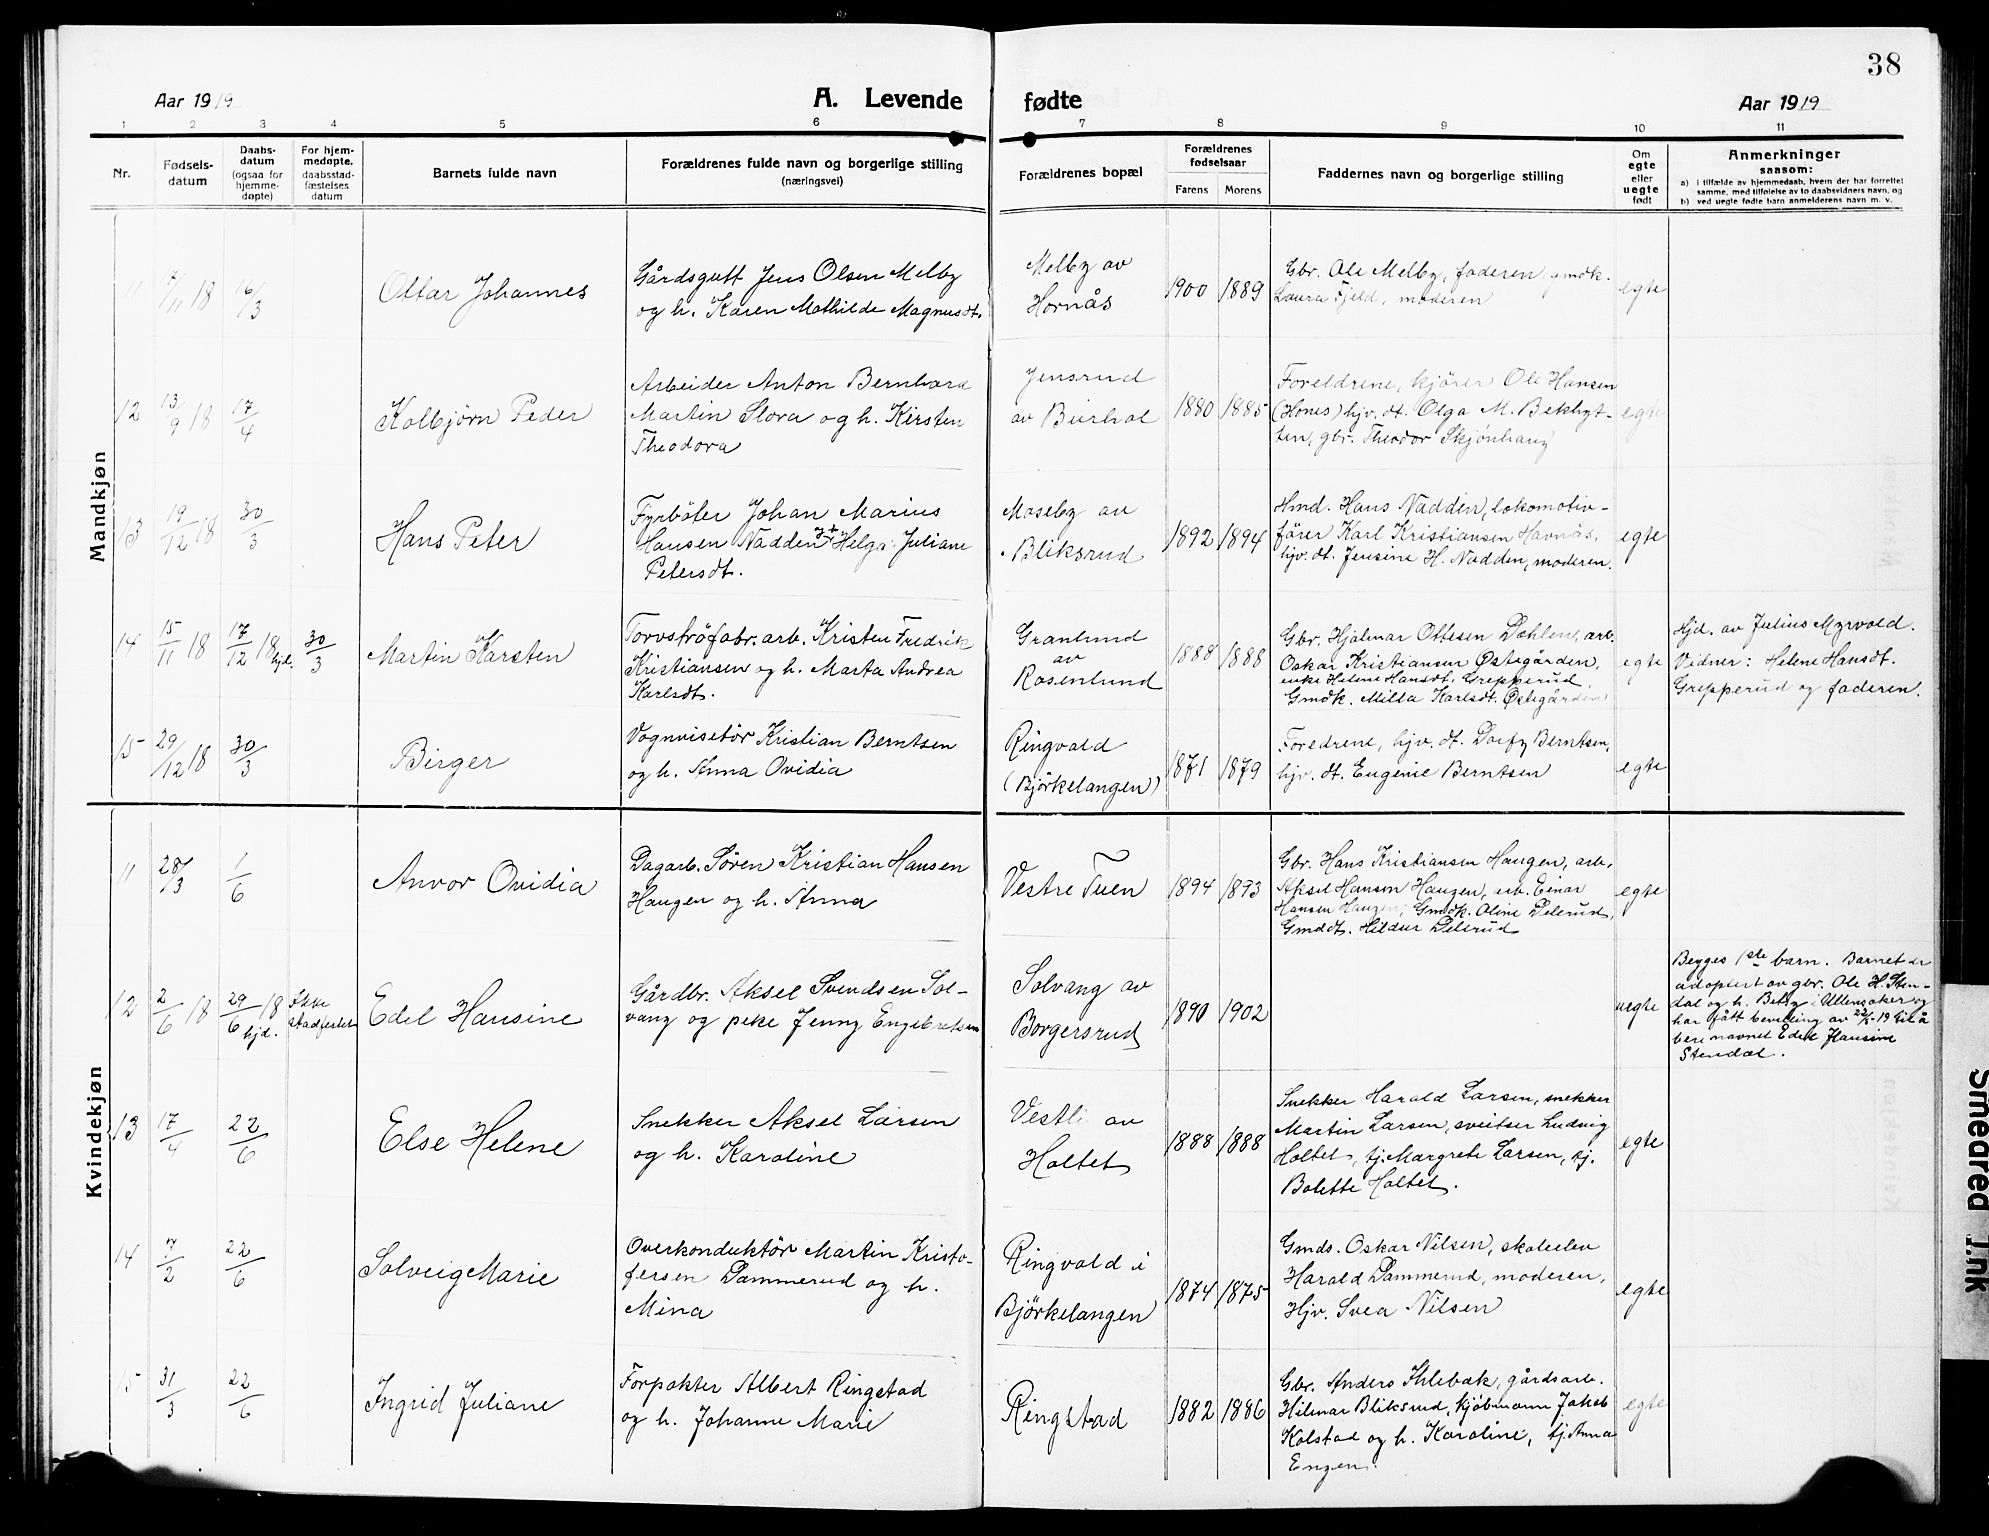 38
Aar 1919
A. Levende fødte
Aar 1919
1 2 3 4 5 6 7 8 9 10 11
Nr.
Fødsels-
datum
Daabs-
datum
(ogsaa for
hjemme-
døpte)
For hjem-
medøpte,
daabsstad-
fæstelses
datum
Barnets fulde navn
Forældrenes fulde navn og borgerlige stilling
(næringsvei)
Forældrenes bopæl
Forældrenes
fødselsaar
Farens Morens
Faddernes navn og borgerlige stilling
Om
egte
eller
uegte
født
Anmerkninger
saasom:
a) i tilfælde av hjemmedaab, hvem der har forrettet
samme, med tilføielse av to daabsvidners navn, og
b) ved uegte fødte barn anmelderens navn m. v.
Mandkjøn
11 7/11 18 16/3
Ottar Johannes
Gårdsgutt Jens Olsen Melby
og h. Karen Mathilde Magnusdt.
Melby av
Hornås
1900 1889
Gbr. Ole Melby, faderen, gmdk.
Laura Fjeld, moderen
egte
12 13/9 18 17/4
Kolbjörn Peder
Arbeider Anton Bernhard
Martin Slora og h. Kirsten
Theodora
Jensrud
av
1880 1885
Foreldrene, kjører Ole Hansen
(Hones) hjv. dt. Olga M. Bekhyt-
ten, gbr. Theodor Skjönhaug
egte
13 19/12 18 30/3
Hans Peter
Fyrböter Johan Marius
Hansen Nadden og h. Helga Juliane
Petersdt.
Moseby av
Bliksrud
1892 1894
Hmd. Hans Nadden, lokomotiv-
förer Karl Kristiansen Havnås,
hjv. dt. Jensine H. Nadden, moderen.
egte
14 15/11 18 17/12 18 hjd. 30/3
Martin Karsten
Torvströfabr. arb. Kristen Fredrik
Kristiansen og h. Marta Andrea
Karlsdt.
Granlund
av
Rosenlund
1888 1888
Gbr. Hjalmar Ottesen Dahlen, arb.
Oskar Kristiansen Østegården,
enke Helene Hansdt. Grepperud,
Gmdk. Milla Karlsdt. Østegården
egte
Hjd. av Julius Myrvold.
Vidner: Helene Hansdt.
Grepperud og faderen.
15 29/12 18 30/3
Birger
Vognvisitör Kristian Berntsen
og h. Anna Ovidia
Ringvold
(Björkelangen)
1871 1879
Foredrene, hjv. dt. Berntsen,
hjv. dt. Eugenie Berntsen
egte
Kvindekjøn
11 28/3 1/6
Anvor Ovidia
Dagarb. Sören Kristian Hansen
Haugen og h. Anna
Vestre Tuen
1894 1893
Gbr. Hans Kristiansen Haugen, arb.
Aksel Hansen Haugen, arb. Einar
Hansen Haugen, Gmdk. Oline Delerud,
Gmddt. Hildur Delerud
egte
12 2/6 18 29/6 18 hjd. ikke
stadfestet
Edel Hansine
Gårdbr. Aksel Svendsen Sol-
vang og pike Jenny Engebretsen
Solvang av
Borgersrud
1890 1902
uegte
Begges 1ste barn. Barnet er
adoptert av gbr. Ole H. Sten-
dal og h. Betzy i Ullensaker og
har fått bevilling av 22/5-19 til å
bere navnet Edel Hansine
Stendal.
13 17/4 22/6
Else Helene
Snekker Aksel Larsen
og h. Karoline
Vestli av
Holtet
1888 1888
Snekker Harald Larsen, snekker
Martin Larsen, sveitser Ludvig
Holtet, tj. Margrete Larsen, tj.
Bolette Holtet.
egte
14 7/2 22/6
Solveig Marie
Overkonduktör Martin Kristo-
fersen Dammerud og h.
Mina
Ringvold i
Björkelangen
1874 1875
Gmds. Oskar Nilsen, skoleelev
Harald Dammerud, moderen,
Hjv. Svea Nilsen
egte
15 31/3 22/6
Ingrid Juliane
Forpakter Albert Ringstad
og h. Johanne Marie
Ringstad
1882 1886
Gbr. Anders Ihlebæk, gårdsarb.
Hilmar Bliksrud, kjöbmann Jakob
Kolstad og h. Karoline, tj. Anna
Engen.
egte
Smeared Ink